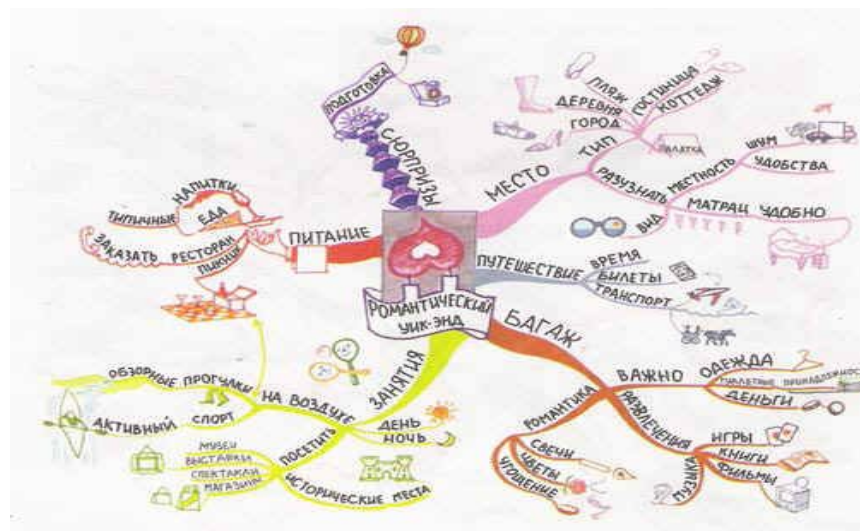 РОМАНТИЧЕСКИЙ
УИК-ЭНД
СЮРПРИЗЫ
ПОДГОТОВКА
МЕСТО
ТИП
ПЛЯЖ
ДЕРЕВНЯ
ГОРОД
ГОСТИНИЦА
КОТТЕДЖ
ПАЛАТКА
РАЗУЗНАТЬ
МЕСТНОСТЬ
ШУМ
УДОБСТВА
МАТРАЦ УДОБНО
ВИД
ПУТЕШЕСТВИЕ
ВРЕМЯ
БИЛЕТЫ
ТРАНСПОРТ
БАГАЖ
ВАЖНО
ОДЕЖДА
ТУАЛЕТНЫЕ ПРИНАДЛЕЖНОС
ДЕНЬГИ
РАЗВЛЕЧЕНИЯ
ИГРЫ
КНИГИ
ФИЛЬМЫ
МУЗЫКА
РОМАНТИКА
СВЕЧИ
ЦВЕТЫ
УГОЩЕНИЕ
ЗАНЯТИЯ
ДЕНЬ
НОЧЬ
НА ВОЗДУХЕ
ОБЗОРНЫЕ ПРОГУЛКИ
АКТИВНЫЙ СПОРТ
ПОСЕТИТЬ
МУЗЕИ
ВЫСТАВКИ
СПЕКТАКЛИ
МАГАЗИНЫ
ИСТОРИЧЕСКИЕ МЕСТА
ПИТАНИЕ
ЕДА
НАПИТКИ
ТИПИЧНЫЕ
РЕСТОРАН
ЗАКАЗАТЬ
ПИКНИК